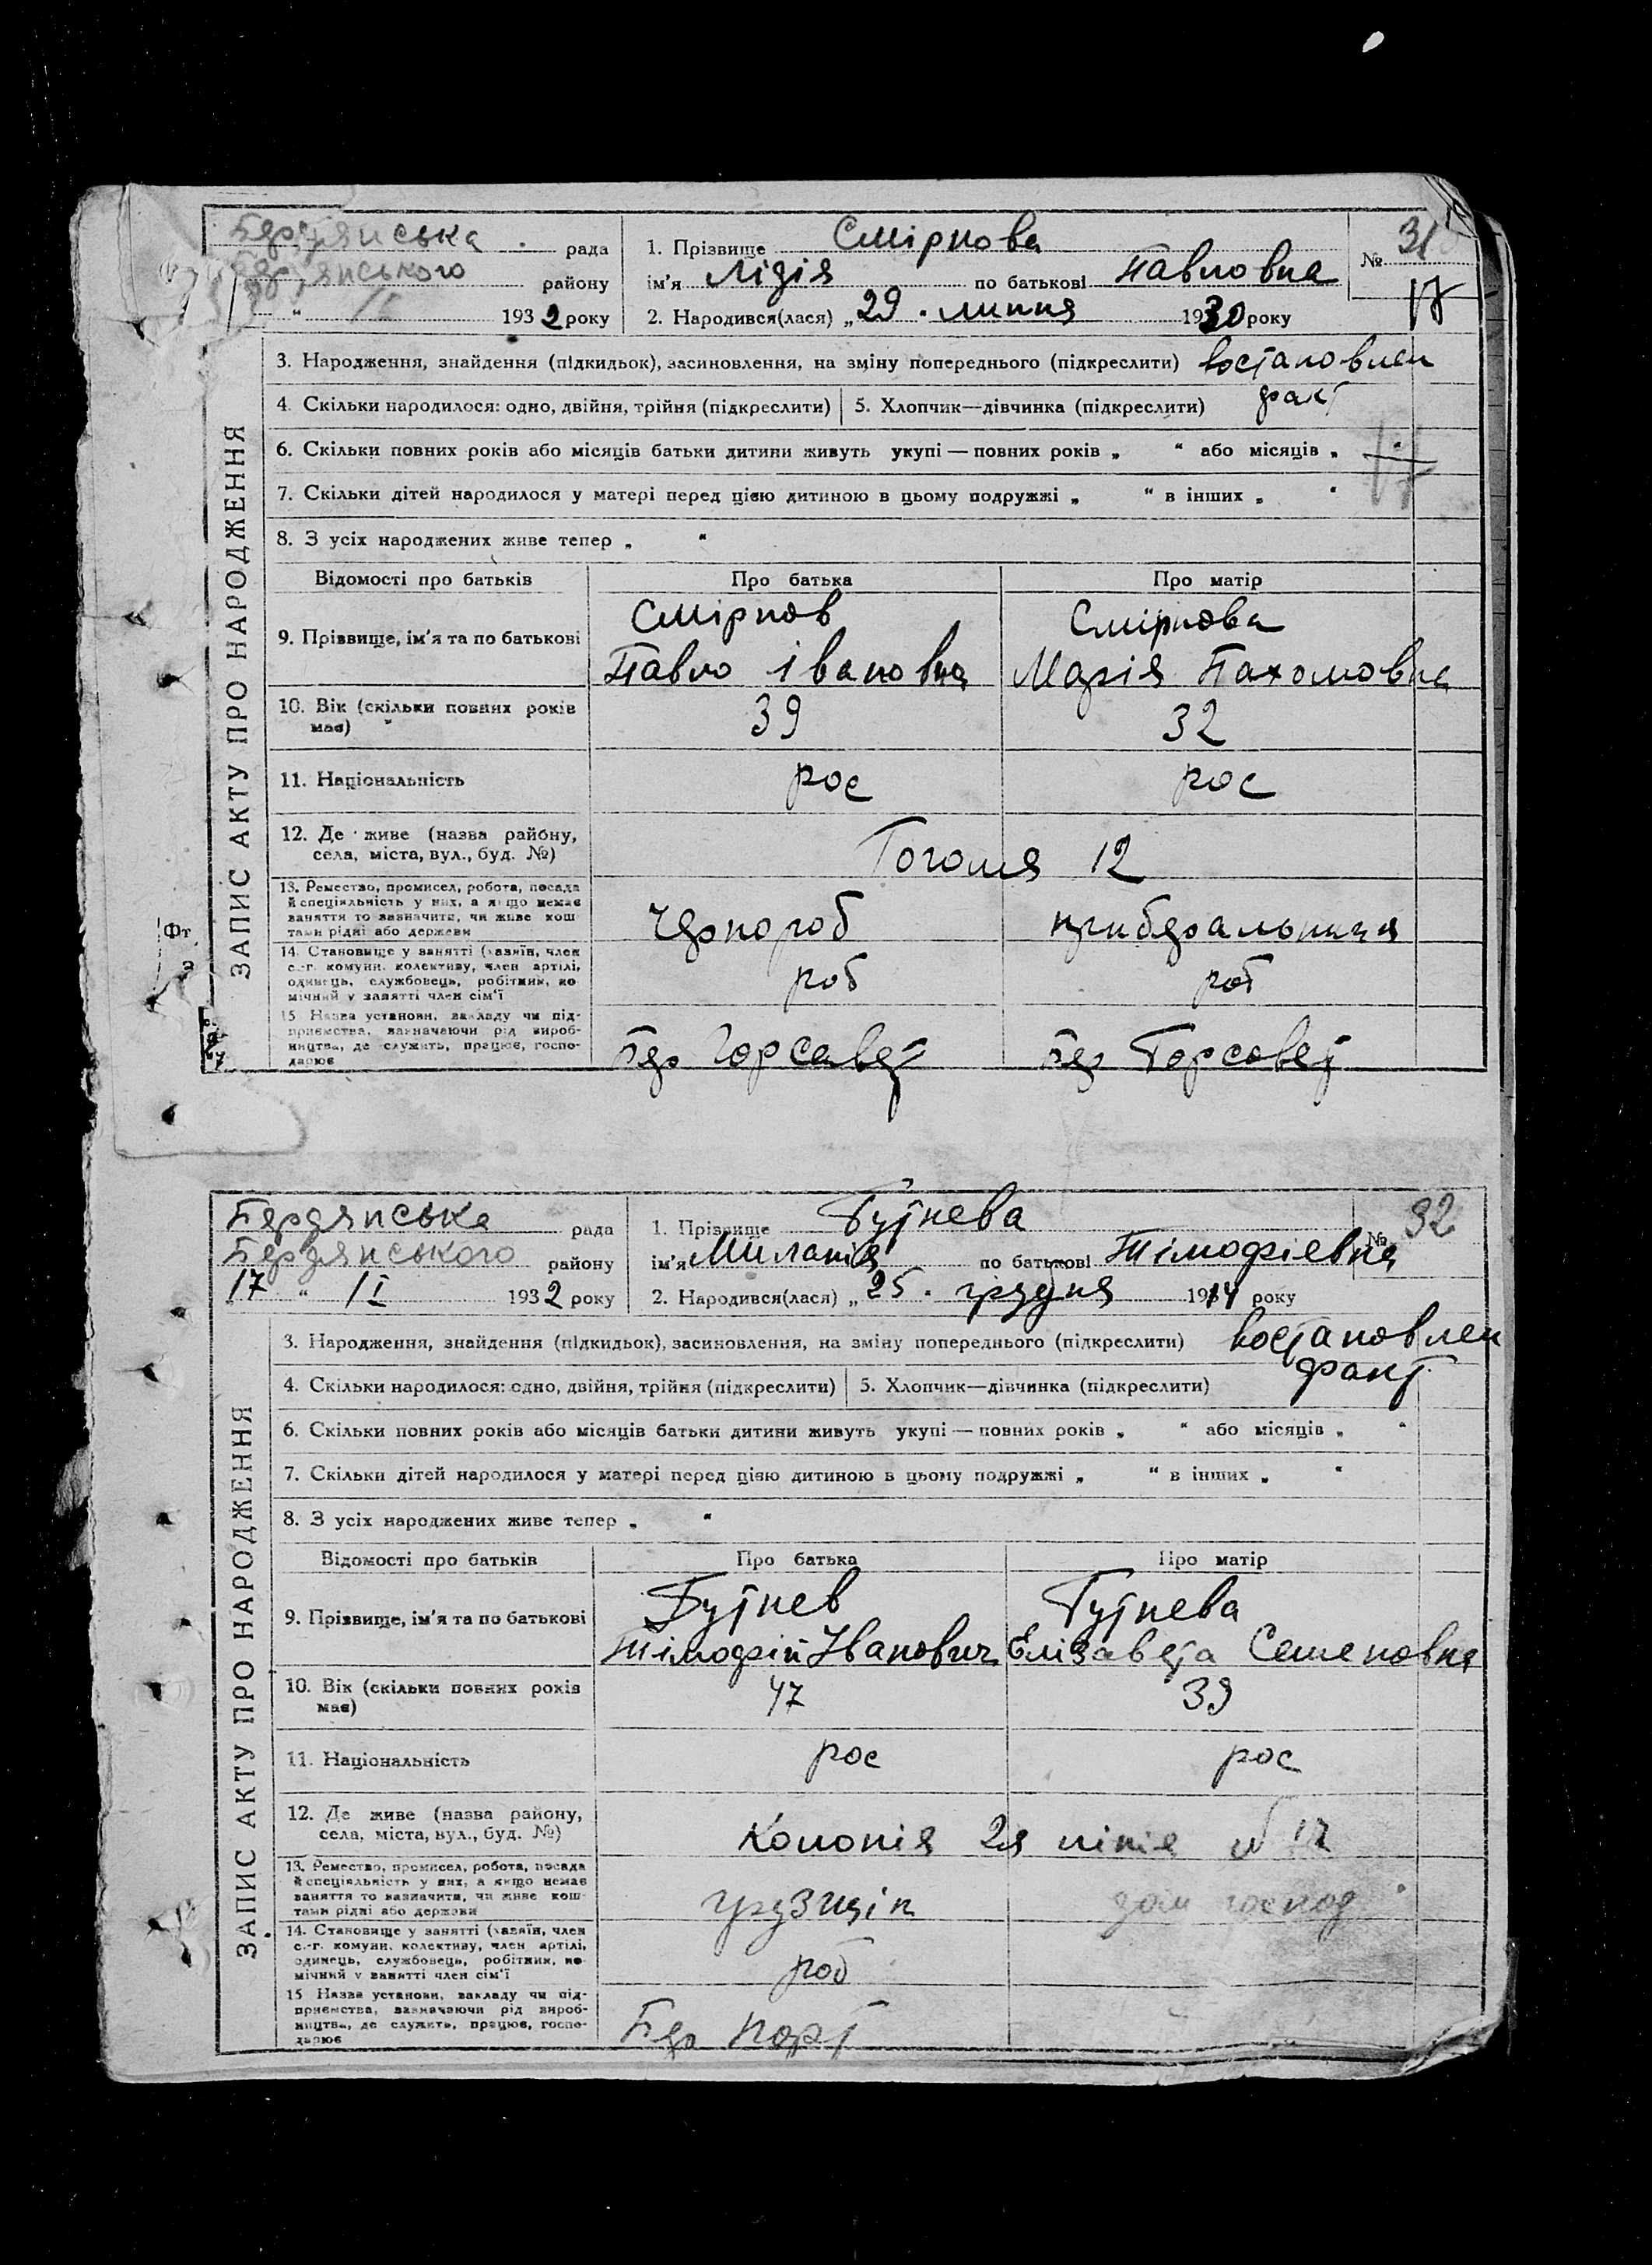 Бердянська рада
Бердянського району
" II 1932 року
1. Прізвище Смірнова
ім'я Лідія по батькові Павловна
2. Народився(лася) „29. липня 1930 року
№ 31
17
ЗАПИС АКТУ ПРО НАРОДЖЕННЯ
3. Народження, знайдення (підкидьок), засиновлення, на зміну попереднього (підкреслити) востановлен
факт
4. Скільки народилося: одно, двійня, трійня (підкреслити) 5. Хлопчик—дівчинка (підкреслити)
6. Скільки повних років або місяців батьки дитини живуть укупі — повних років „ " або місяців „ "
7. Скільки дітей народилося у матері перед цією дитиною в цьому подружжі „ " в інших „ "
8. З усіх народжених живе тепер „ "
Відомості про батьків Про батька Про матір
9. Прізвище, ім'я та по батькові
Смірнов Смірнова
Павло Івановна Марія Пахомовна
10. Вік (скільки повних років має) 39 32
11. Національність рос рос
12. Де живе (назва району,
села, міста, вул., буд. №) Гоголя 12
13. Ремество, промисел, робота, посада
й спеціяльність у них, а якщо немає
заняття то зазначити, чи живе кош-
тами рідні або держави
Чернороб прибєральниця
14. Становище у занятті (хазяїн, член
с.-г. комуни, колективу, член артілі,
одинець, службовець, робітник, по-
мічний у занятті член сім'ї
роб роб
15 Назва установи, закладу чи під-
приємства, зазначаючи рід вироб-
ництва, де служить, працює, госпо-
дарює
Бер Горсавет Бер Горсовет
Бердянська рада
Бердянського району
17 " II 1932 року
1. Прізвище Бутнева
ім'я Миланія по батькові Тімофіевна
2. Народився(лася) „25. грудня 1914 року
№ 32
ЗАПИС АКТУ ПРО НАРОДЖЕННЯ
3. Народження, знайдення (підкидьок), засиновлення, на зміну попереднього (підкреслити) востановлен
факт
4. Скільки народилося: одно, двійня, трійня (підкреслити) 5. Хлопчик—дівчинка (підкреслити)
6. Скільки повних років або місяців батьки дитини живуть укупі — повних років „ " або місяців „ "
7. Скільки дітей народилося у матері перед цією дитиною в цьому подружжі „ " в інших „ "
8. З усіх народжених живе тепер „ "
Відомості про батьків Про батька Про матір
9. Прізвище, ім'я та по батькові
Бутнев Бутнева
Тімофій Иванович Елізавета Семеновна
10. Вік (скільки повних років має) 47 39
11. Національність рос рос
12. Де живе (назва району,
села, міста, вул., буд. №) Колонія 2я лінія № 17
13. Ремество, промисел, робота, посада
й спеціяльність у них, а якщо немає
заняття то зазначити, чи живе кош-
тами рідні або держави
грузщік дом господ
14. Становище у занятті (хазяїн, член
с.-г. комуни, колективу, член артілі,
одинець, службовець, робітник, по-
мічний у занятті член сім'ї
роб
15 Назва установи, закладу чи під-
приємства, зазначаючи рід вироб-
ництва, де служить, працює, госпо-
дарює
Бер Порт